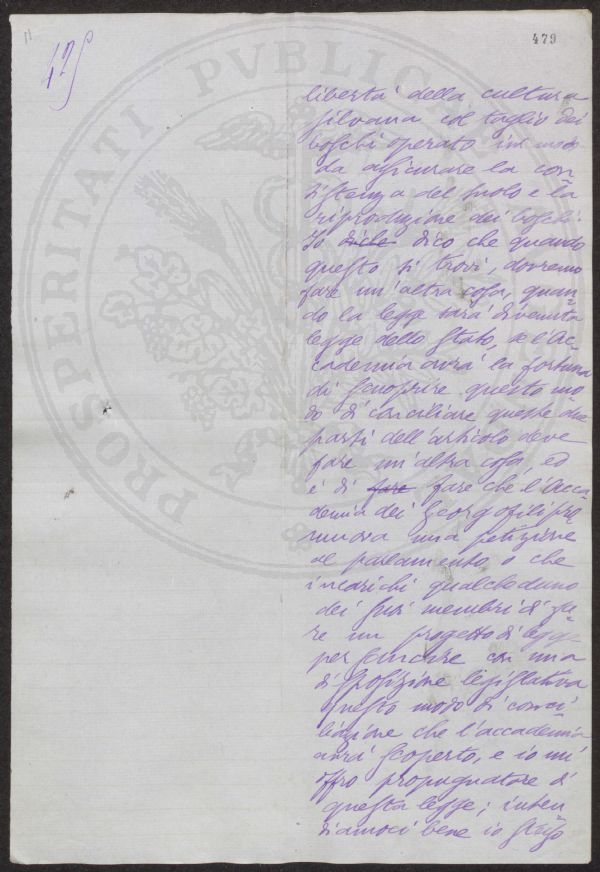 11
479
425
PROSPERITATI PVBLICAE
libertà della cultura
silvana col taglio dei
boschi operato in modo
da assicurare la con
sistenza del suolo e la
riproduzione dei boschi.
Io diche dico che quando
questo si trovi, dovremo
fare un'altra cosa, quan-
do la legge sarà divenuta
legge dello Stato, se l'Ac-
cademia avrà la fortuna
di scuoprire questo mo
do di conciliare queste due
parti dell'articolo deve
fare un'altra cosa, ed
è di fare fare che l'Acca-
demia dei Georgofili pro
muova una petizione
al parlamento o che
incarichi qualcheduno
dei suoi membri di fa
re un progetto di legge
per sancire con una
disposizione legislativa
questo modo di conci
liazione che l'accademia
avrà scoperto, e io mi
offro propugnatore di
questa legge; inten
diamoci bene io stesso